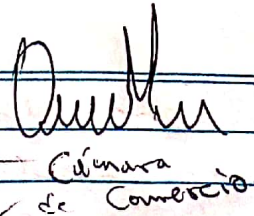 Cámara
de Comercio